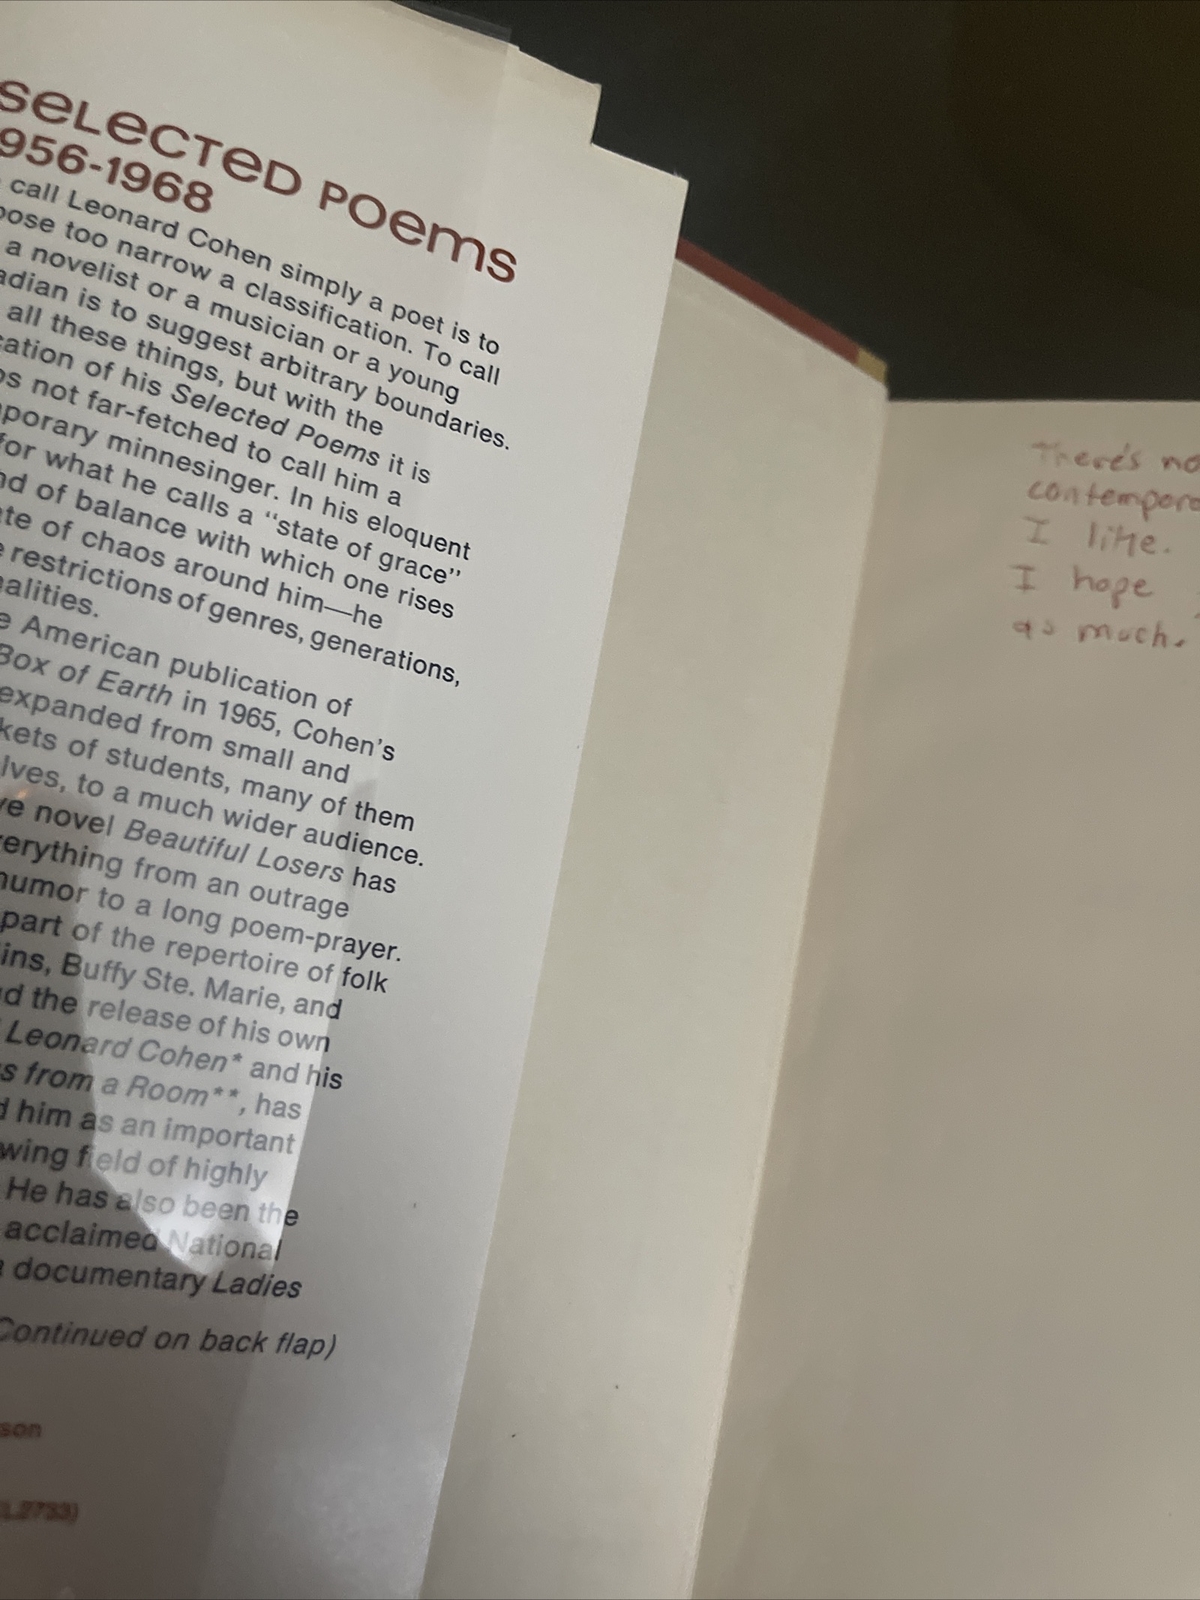 SELECTED POEMS
956-1968
call Leonard Cohen simply a poet is to
pose too narrow a classification. To call
a novelist or a musician or a young
adian is to suggest arbitrary boundaries.
all these things, but with the
cation of his Selected Poems it is
ps not far-fetched to call him a
mporary minnesinger. In his eloquent
for what he calls a "state of grace"
nd of balance with which one rises
ate of chaos around him—he
e restrictions of genres, generations,
ealities.
e American publication of
Box of Earth in 1965, Cohen's
expanded from small and
kets of students, many of them
lves, to a much wider audience.
ve novel Beautiful Losers has
verything from an outrage
humor to a long poem-prayer.
part of the repertoire of folk
ins, Buffy Ste. Marie, and
d the release of his own
Leonard Cohen* and his
s from a Room**, has
d him as an important
wing field of highly
He has also been the
acclaimed National
documentary Ladies
Continued on back flap)
son
L2733)
There's no
contempora
I like.
I hope
as much.